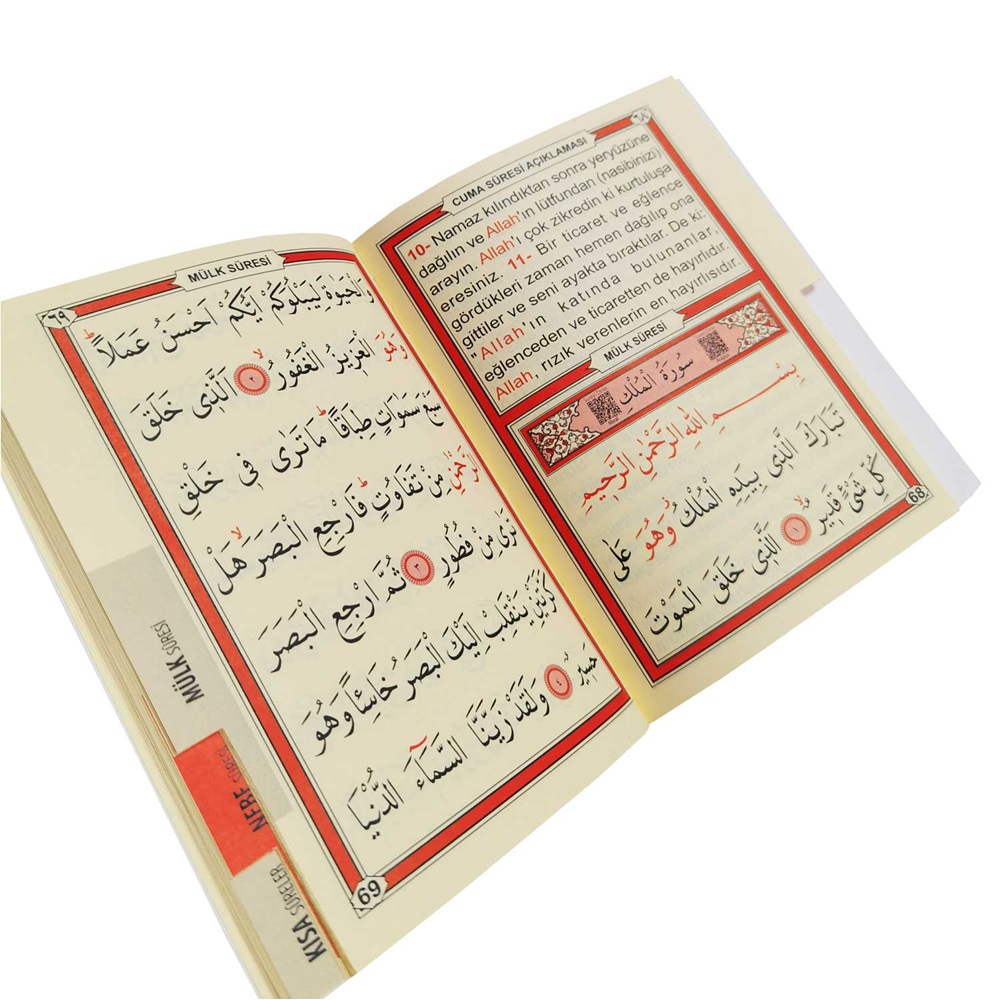 ٦٨
CUMA SÛRESİ AÇIKLAMASI
10- Namaz kılındıktan sonra yeryüzüne
dağılın ve Allah'ın lütfundan (nasibinizi)
arayın. Allah'ı çok zikredin ki kurtuluşa
eresiniz. 11- Bir ticaret ve eğlence
gördükleri zaman hemen dağılıp ona
gittiler ve seni ayakta bıraktılar. De ki:
"Allah'ın katında bulunanlar,
eğlenceden ve ticaretten de hayırlıdır.
Allah, rızık verenlerin en hayırlısıdır.
MÜLK SÛRESİ
سُورَةُ الْمُلْكِ
بِسْمِ اللهِ الرَّحْمٰنِ الرَّحِيمِ
تَبَارَكَ الَّذِى بِيَدِهِ الْمُلْكُ وَهُوَ عَلٰى
كُلِّ شَىْءٍ قَدِيرٌ ﴿١﴾ اَلَّذِى خَلَقَ الْمَوْتَ
68
٦٩
MÜLK SÛRESİ
وَالْحَيٰوةَ لِيَبْلُوَكُمْ اَيُّكُمْ اَحْسَنُ عَمَلاً
وَهُوَ الْعَزِيزُ الْغَفُورُ ﴿٢﴾ اَلَّذِى خَلَقَ
سَبْعَ سَمٰوَاتٍ طِبَاقًا مَا تَرٰى فِى خَلْقِ
الرَّحْمٰنِ مِنْ تَفَاوُتٍ فَارْجِعِ الْبَصَرَ هَلْ
تَرٰى مِنْ فُطُورٍ ﴿٣﴾ ثُمَّ ارْجِعِ الْبَصَرَ
كَرَّتَيْنِ يَنْقَلِبْ اِلَيْكَ الْبَصَرُ خَاسِئًا وَهُوَ
حَسِيرٌ ﴿٤﴾ وَلَقَدْ زَيَّنَّا السَّمَاءَ الدُّنْيَا
69
MÜLK SÛRESİ
NEBE SÛRESİ
KISA SÛRELER